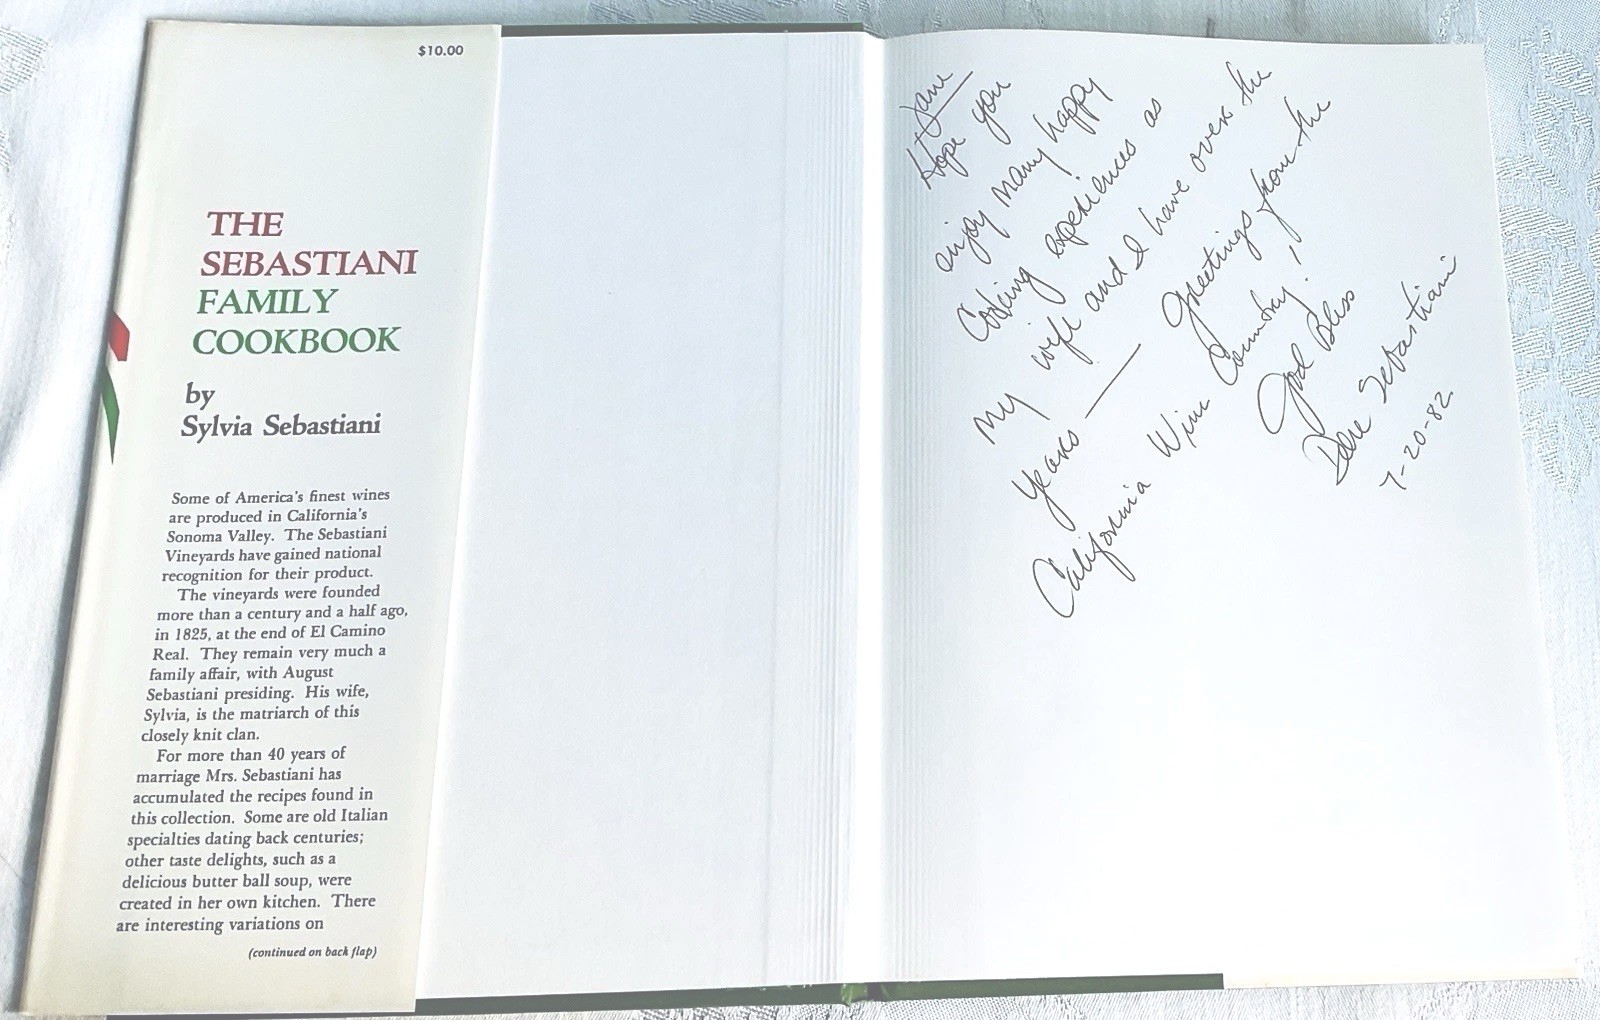 $10.00
THE
SEBASTIANI
FAMILY
COOKBOOK
by
Sylvia Sebastiani
Some of America's finest wines
are produced in California's
Sonoma Valley. The Sebastiani
Vineyards have gained national
recognition for their product.
The vineyards were founded
more than a century and a half ago,
in 1825, at the end of El Camino
Real. They remain very much a
family affair, with August
Sebastiani presiding. His wife,
Sylvia, is the matriarch of this
closely knit clan.
For more than 40 years of
marriage Mrs. Sebastiani has
accumulated the recipes found in
this collection. Some are old Italian
specialties dating back centuries;
other taste delights, such as a
delicious butter ball soup, were
created in her own kitchen. There
are interesting variations on
(continued on back flap)
Jane
Hope you
enjoy many happy
Cooking experiences as
my wife and I have over the
years — Greetings from the
California Wine Country!
God Bless
Sebastiani
7-20-82